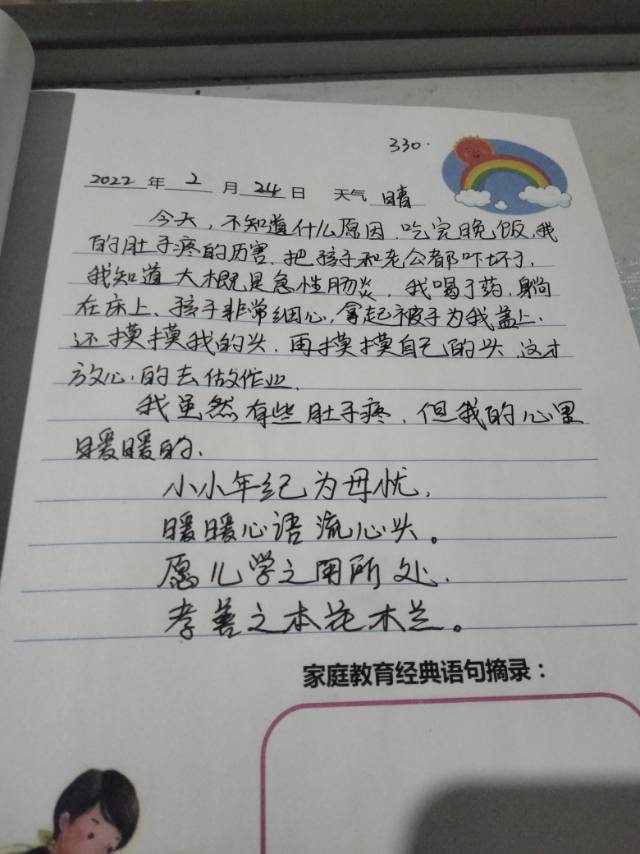 330.
2022 年 2 月 24 日 天气 晴
今天，不知道什么原因，吃完晚饭，我
的肚子疼的厉害，把孩子和老公都吓坏了，
我知道大概是急性肠炎，我喝了药，躺
在床上、孩子非常细心，拿起被子为我盖上，
还摸摸我的头，再摸摸自己的头，这才
放心的去做作业，
我虽然有些肚子疼，但我的心里
暖暖的，
小小年纪为母忧，
暖暖心语流心头。
愿儿学之用所处，
孝善之本花木兰。
家庭教育经典语句摘录：